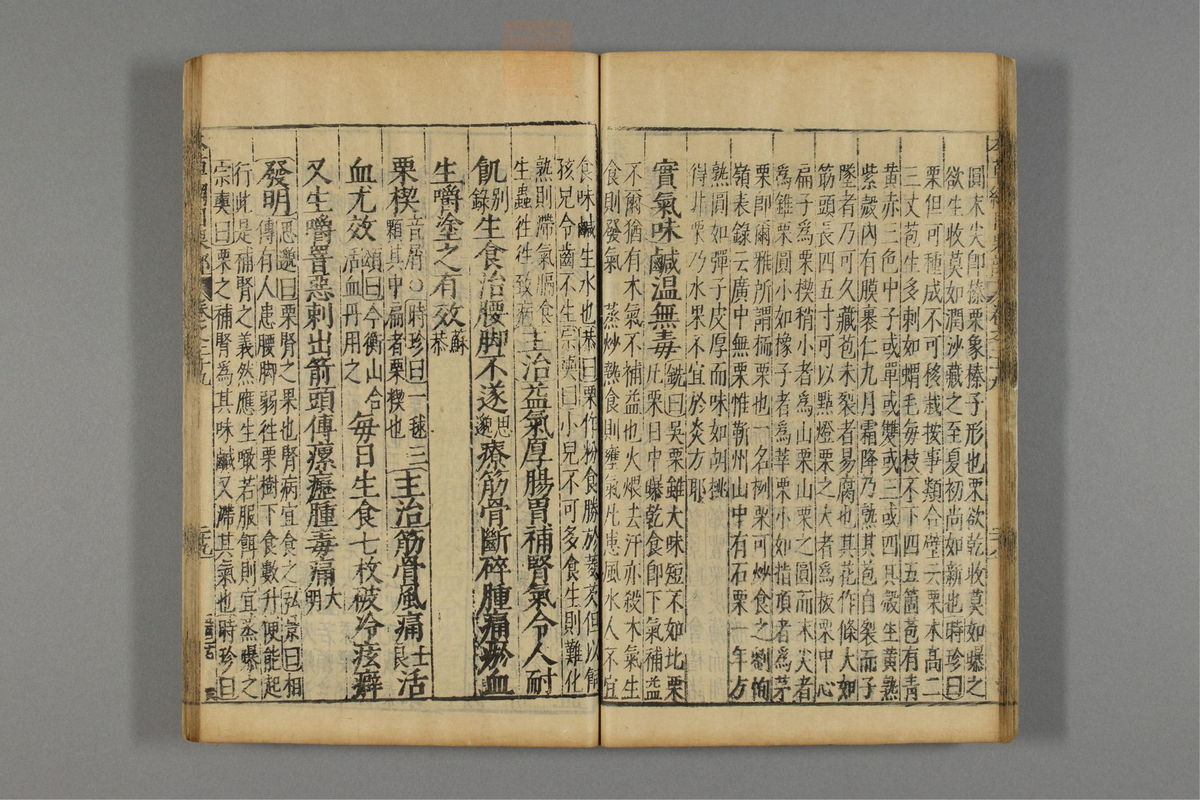 圓末尖即榛栗象榛子形也栗欲乾收莫如曝之
欲生收莫如潤沙藏之至夏初尚如新也時珍曰
栗但可種成不可移栽按事類合璧云栗木高二
三丈苞生多刺如蝟毛每枝不下四五箇苞有青
黃赤三色中子或單或雙或三或四其殼生黃熟
紫殼內有膜裹仁九月霜降乃熟其苞自裂而子
墜者乃可久藏苞未裂者易腐也其花作條大如
筋頭長四五寸可以點燈栗之大者爲板栗中心
扁子爲栗楔稍小者爲山栗山栗之圓而末尖者
爲錐栗圓小如橡子者爲莘栗小如指頂者爲茅
栗即爾雅所謂栭栗也一名栵栗可炒食之劉恂
嶺表錄云廣中無栗惟靳州山中有石栗一年方
熟圓如彈子皮厚而味如胡桃
得非栗乃水果不宜於炎方耶
實氣味鹹溫無毒 詵曰吳栗雖大味短不如北栗
凡栗日中曝乾食即下氣補益
不爾猶有木氣不補益也火煨去汗亦殺木氣生
食則發氣 蒸炒熟食則壅氣凡患風水人不宜
食味鹹生水也恭曰栗作粉食勝於菱芡但以飼
孩兒令齒不生宗奭曰小兒不可多食生則難化
熟則滯氣膈食生蟲往往致病 主治益氣厚腸胃補腎氣令人耐
飢別錄生食治腰脚不遂思邈療筋骨斷碎腫痛瘀血
生嚼塗之有效蘇恭
栗楔音屑○時珍曰一毬三顆其中扁者栗楔也 主治筋骨風痛士良活
血尤效頌曰今衡山合活血丹用之 每日生食七枚破冷痃癖
又生嚼罯惡刺出箭頭傅瘰癧腫毒痛大明
發明思邈曰栗腎之果也腎病宜食之弘景曰相
傳有人患腰脚弱往栗樹下食數升便能起
行此是補腎之義然應生噉若服餌則宜蒸曝之
宗奭曰栗之補腎爲其味鹹又滯其氣也時珍曰